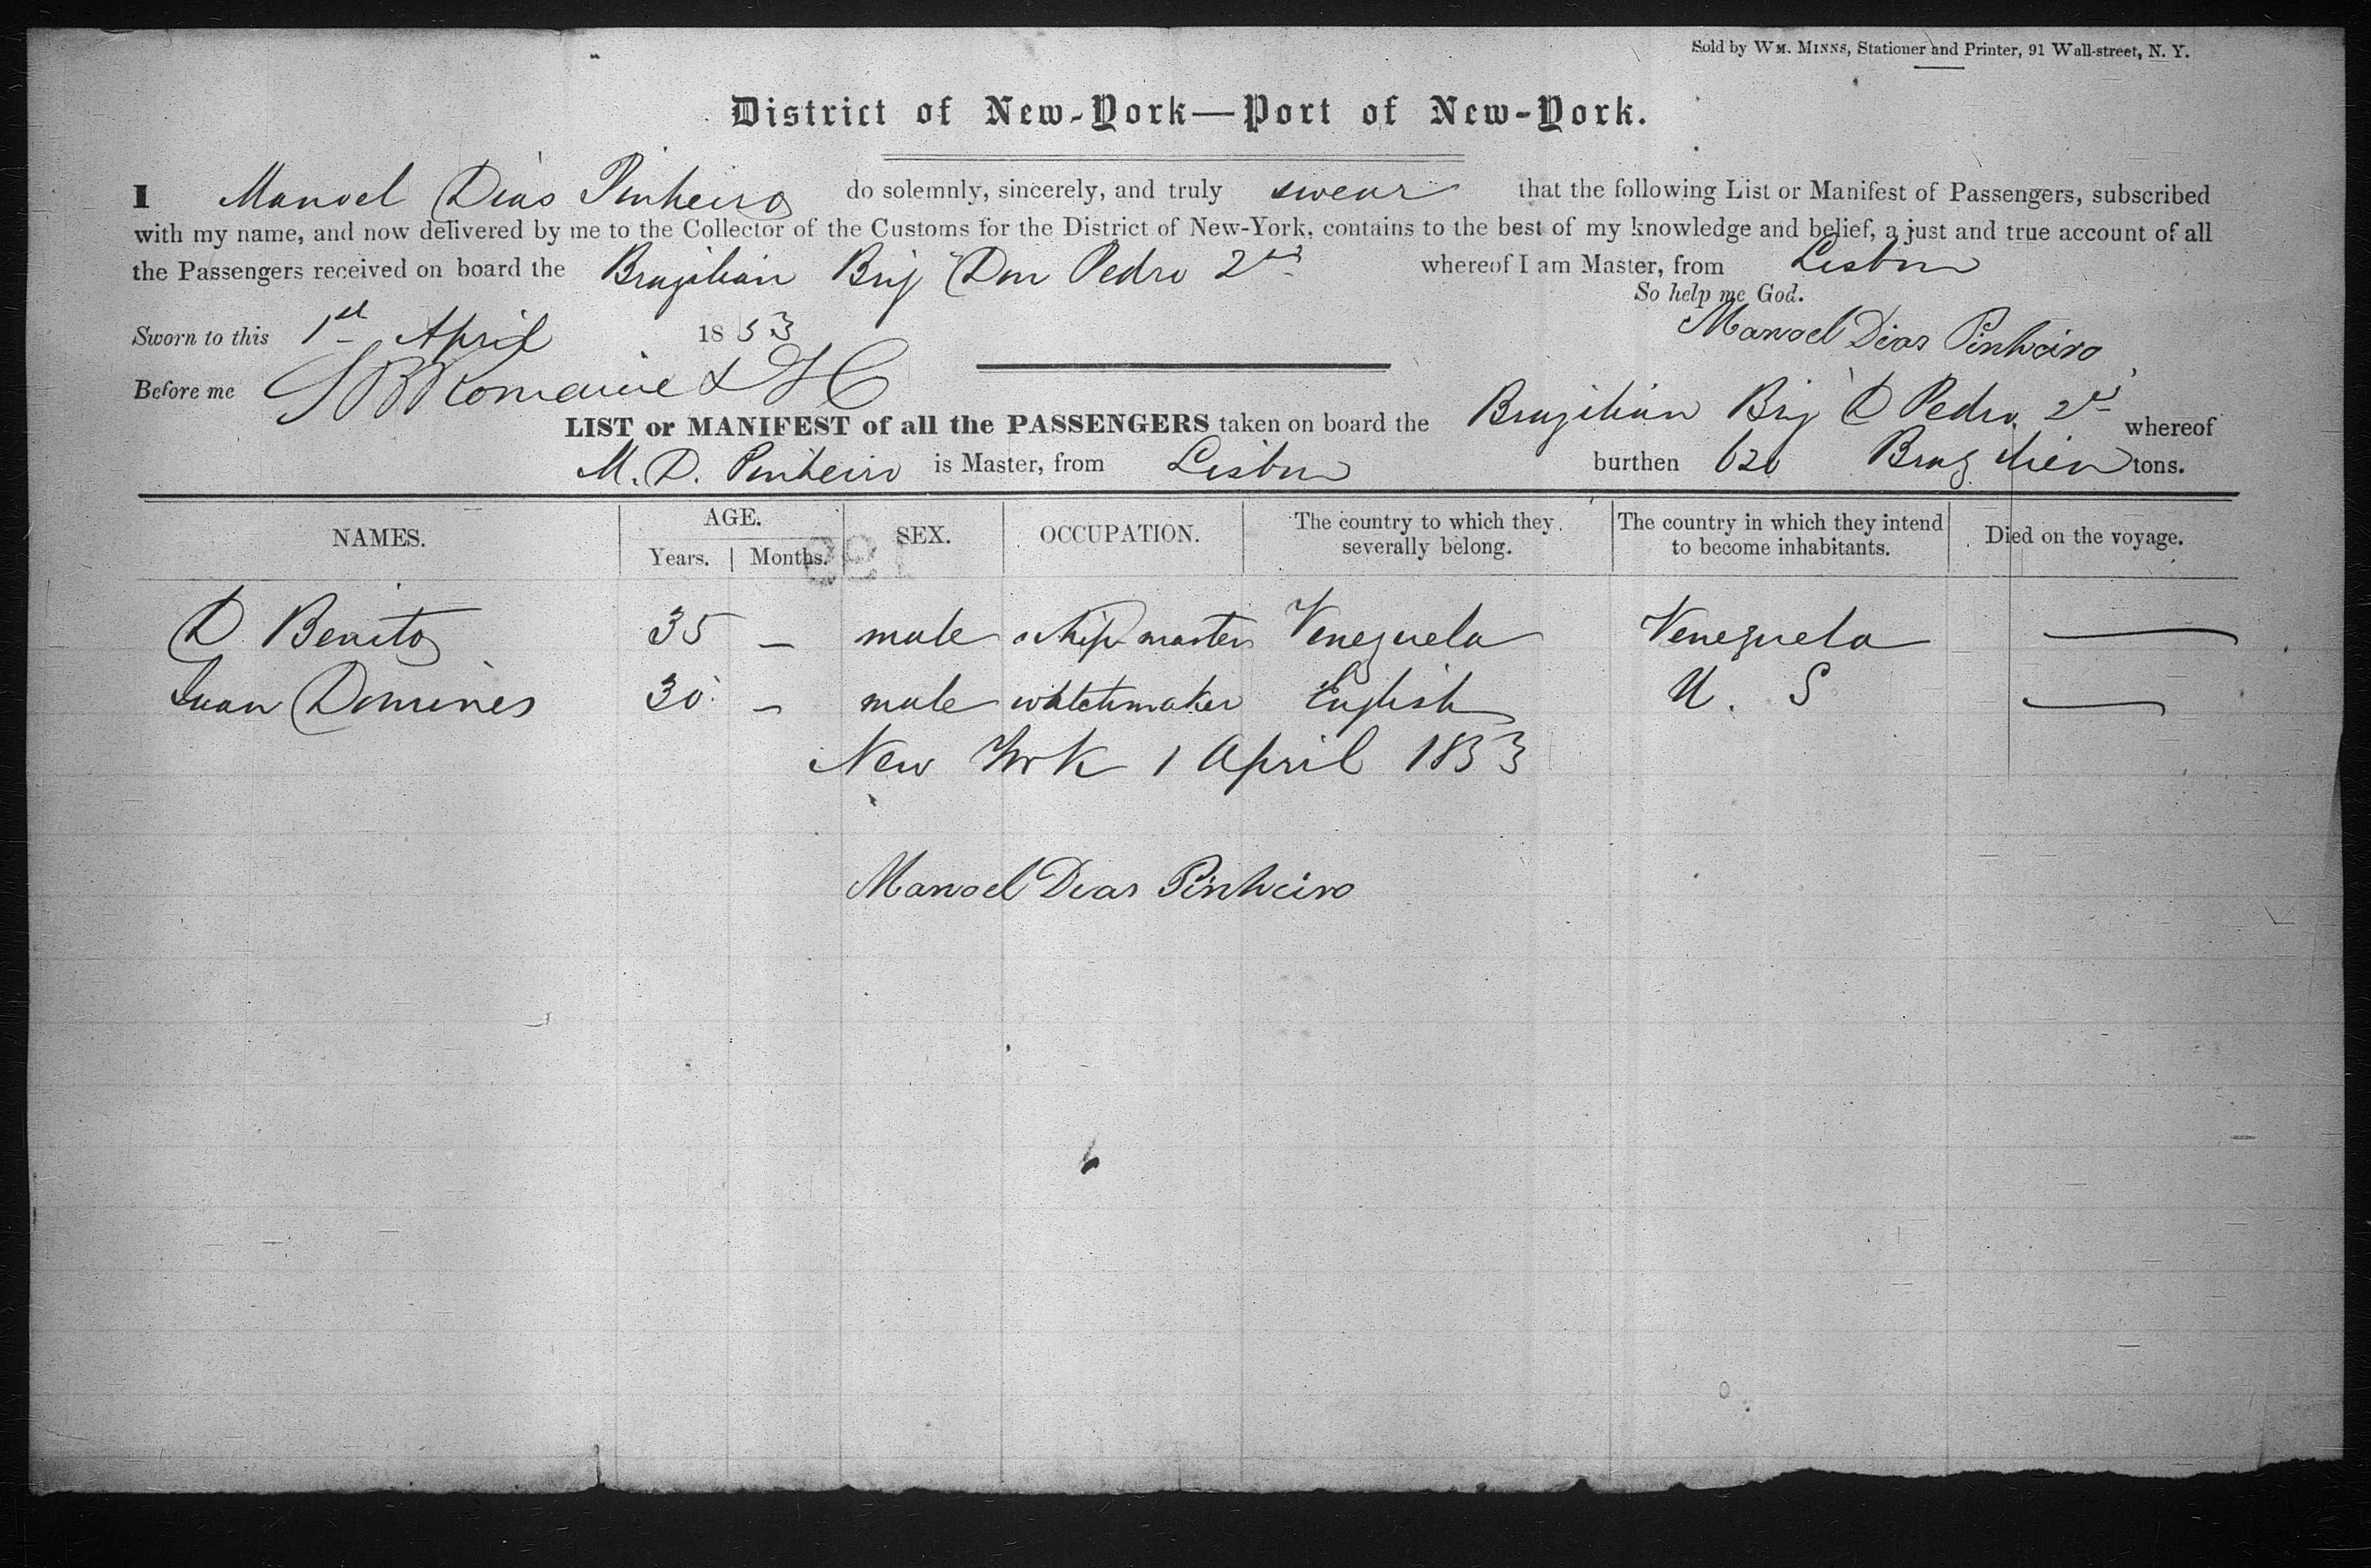 Sold by WM. MINNS, Stationer and Printer, 91 Wall-street, N. Y.
District of New-York—Port of New-York.
I Manoel Dias Pinheiro do solemnly, sincerely, and truly swear that the following List or Manifest of Passengers, subscribed
with my name, and now delivered by me to the Collector of the Customs for the District of New-York, contains to the best of my knowledge and belief, a just and true account of all
the Passengers received on board the Brazilian Brig Don Pedro 2nd whereof I am Master, from Lisbon
So help me God.
Sworn to this 1st April 1853 Manoel Dias Pinheiro
Before me Romaine
LIST or MANIFEST of all the PASSENGERS taken on board the Brazilian Brig D Pedro 2d whereof
M. D. Pinheiro is Master, from Lisbon burthen 620 Brazilien tons.
NAMES. AGE. Years. Months. SEX. OCCUPATION. The country to which they severally belong. The country in which they intend to become inhabitants. Died on the voyage.
D. Benito 35 — male ship master Venezuela Venezuela —
Juan Domines 30 — male watchmaker English U. S —
New York 1 April 1853
Manoel Dias Pinheiro